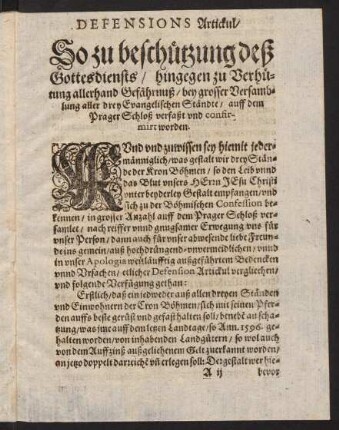 DEFENSIONS Artickul/
So zu beschützung deß
Gottesdiensts / hingegen zu Verhü-
tung allerhand Gefährnuß / bey grosser Versamb-
lung aller drey Evangelischen Ständte / auff dem
Prager Schloß verfaßt vnd confir-
mirt worden.
KVnd vnd zuwissen sey hiemit jeder-
männiglich / was gestalt wir drey Stän-
de der Kron Böhmen / so den Leib vnnd
das Blut vnsers HErrn JEsu Christi
vnter beyderley Gestalt empfangen / vnd
sich zu der Böhmischen Confession be-
kennen / in grosser Anzahl auff dem Prager Schloß ver-
samlet / nach reiffer vnnd gnugsamer Erwegung vns für
vnser Person / dann auch für vnser abwesende liebe Freun-
de ins gemein / auß hochdrängend-vnvermeidlichen / vnnd
in vnser Apologia weitläufftig außgeführtem Bedencken
vnnd Vrsachen / etlicher Defension Artickul verglichen /
vnd folgende Verfügung gethan:
Erstlich / daß ein iedweder auß allen dreyen Ständen
vnd Einwohnern der Cron Böhmen / sich mit seinen Pfer-
den auffs beste gerüst vnd gefast halten soll: benebē an scha-
tzung / was jme auff dem letzen Landtage / so Ann. 1596. ge-
halten worden / von inhabenden Landgütern / so wol auch
von dem Auffzinß außgeliehenem Gelt zuerlannt worden /
an jetzo doppelt darreichē vn̄ erlegen soll: Dergestalt wer hie-
A ij bevor